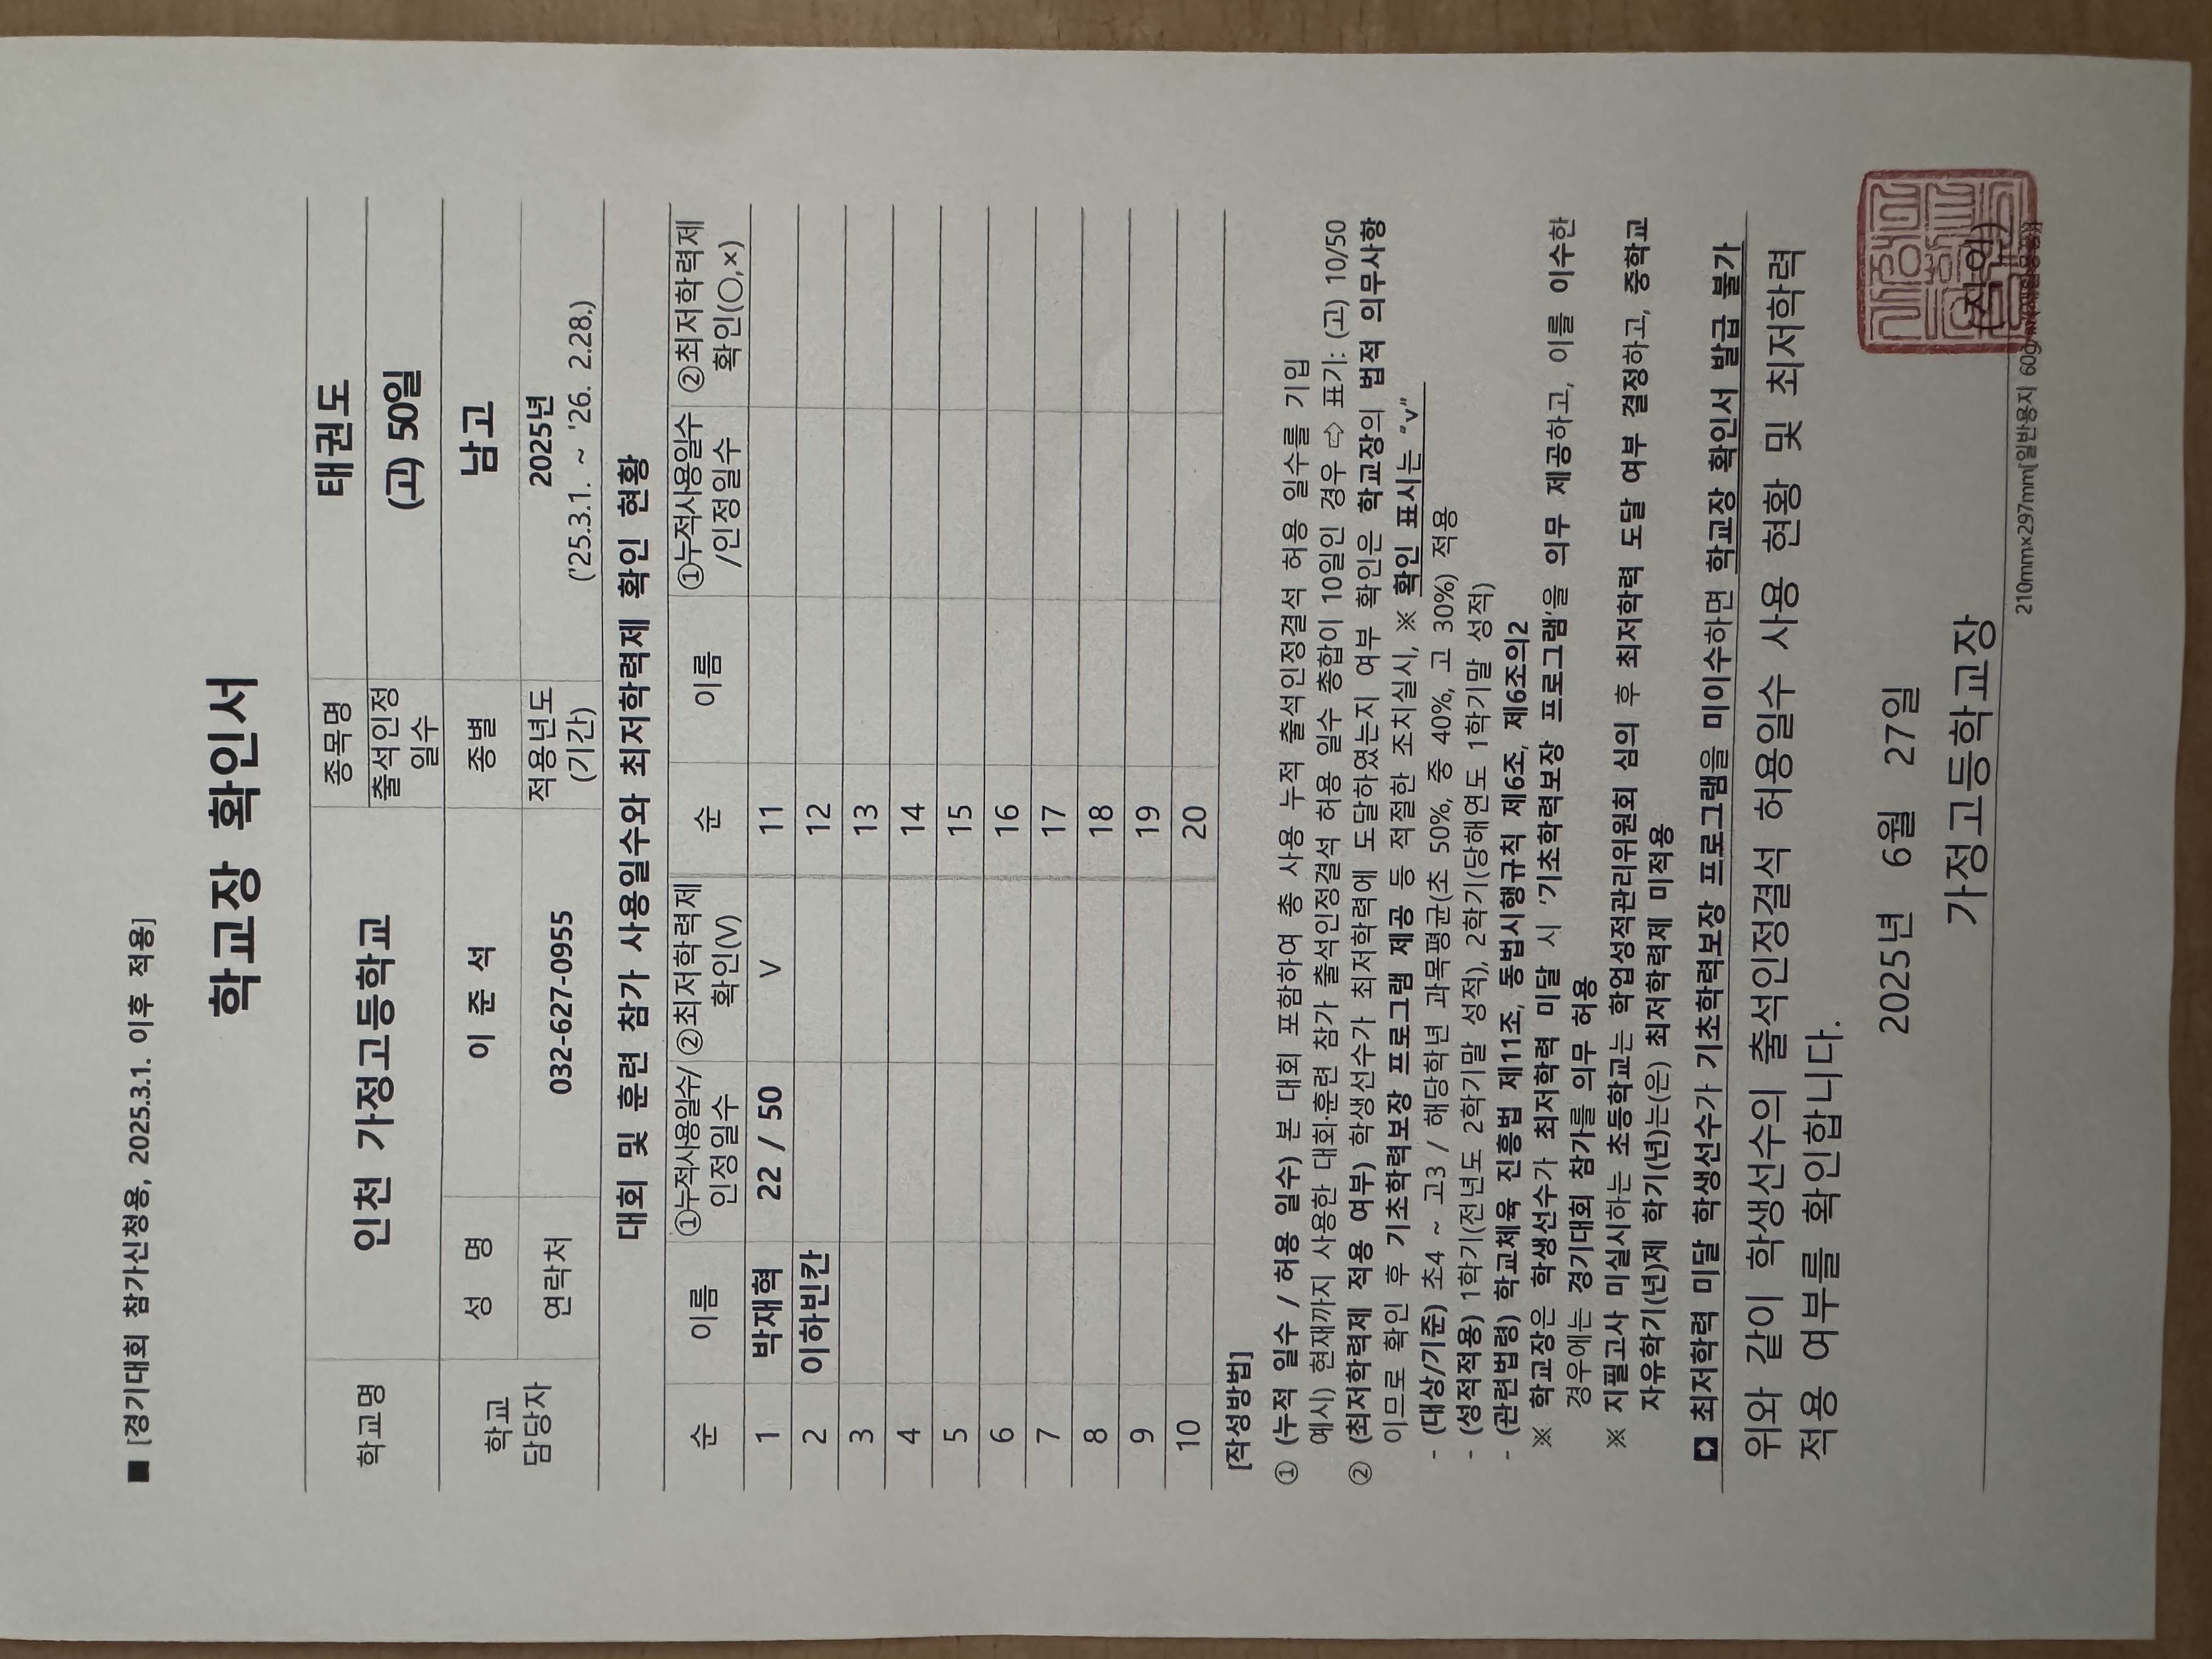 ■ [경기대회 참가신청용, 2025.3.1. 이후 적용]
학교장 확인서
학교명 인천 가정고등학교 종목명 태권도
출석인정 일수 (고) 50일
학교 담당자 성 명 이 준 석 종별 남고
연락처 032-627-0955 적용년도 (기간) 2025년 ('25.3.1. ~ '26. 2.28.)
대회 및 훈련 참가 사용일수와 최저학력제 확인 현황
순 이름 ①누적사용일수/ 인정일수 ②최저학력제 확인(V) 순 이름 ①누적사용일수 /인정일수 ②최저학력제 확인(○,×)
1 박재혁 22 / 50 V 11
2 이하빈칸 12
3 13
4 14
5 15
6 16
7 17
8 18
9 19
10 20
[작성방법]
① (누적 일수 / 허용 일수) 본 대회 포함하여 총 사용 누적 출석인정결석 허용 일수를 기입
예시) 현재까지 사용한 대회·훈련 참가 출석인정결석 허용 일수 총합이 10일인 경우 ⇨ 표기: (고) 10/50
② (최저학력제 적용 여부) 학생선수가 최저학력에 도달하였는지 여부 확인은 학교장의 법적 의무사항
이므로 확인 후 기초학력보장 프로그램 제공 등 적절한 조치실시, ※ 확인 표시는 "v"
- (대상/기준) 초4 ~ 고3 / 해당학년 과목평균(초 50%, 중 40%, 고 30%) 적용
- (성적적용) 1학기(전년도 2학기말 성적), 2학기(당해연도 1학기말 성적)
- (관련법령) 학교체육 진흥법 제11조, 동법시행규칙 제6조, 제6조의2
※ 학교장은 학생선수가 최저학력 미달 시 '기초학력보장 프로그램'을 의무 제공하고, 이를 이수한
경우에는 경기대회 참가를 의무 허용
※ 지필고사 미실시하는 초등학교는 학업성적관리위원회 심의 후 최저학력 도달 여부 결정하고, 중학교
자유학기(년)제 학기(년)는(은) 최저학력제 미적용
최저학력 미달 학생선수가 기초학력보장 프로그램을 미이수하면 학교장 확인서 발급 불가
위와 같이 학생선수의 출석인정결석 허용일수 사용 현황 및 최저학력
적용 여부를 확인합니다.
2025년 6월 27일
가정고등학교장 (직인)
210mm×297mm[일반용지 60g/㎡(재활용품)]